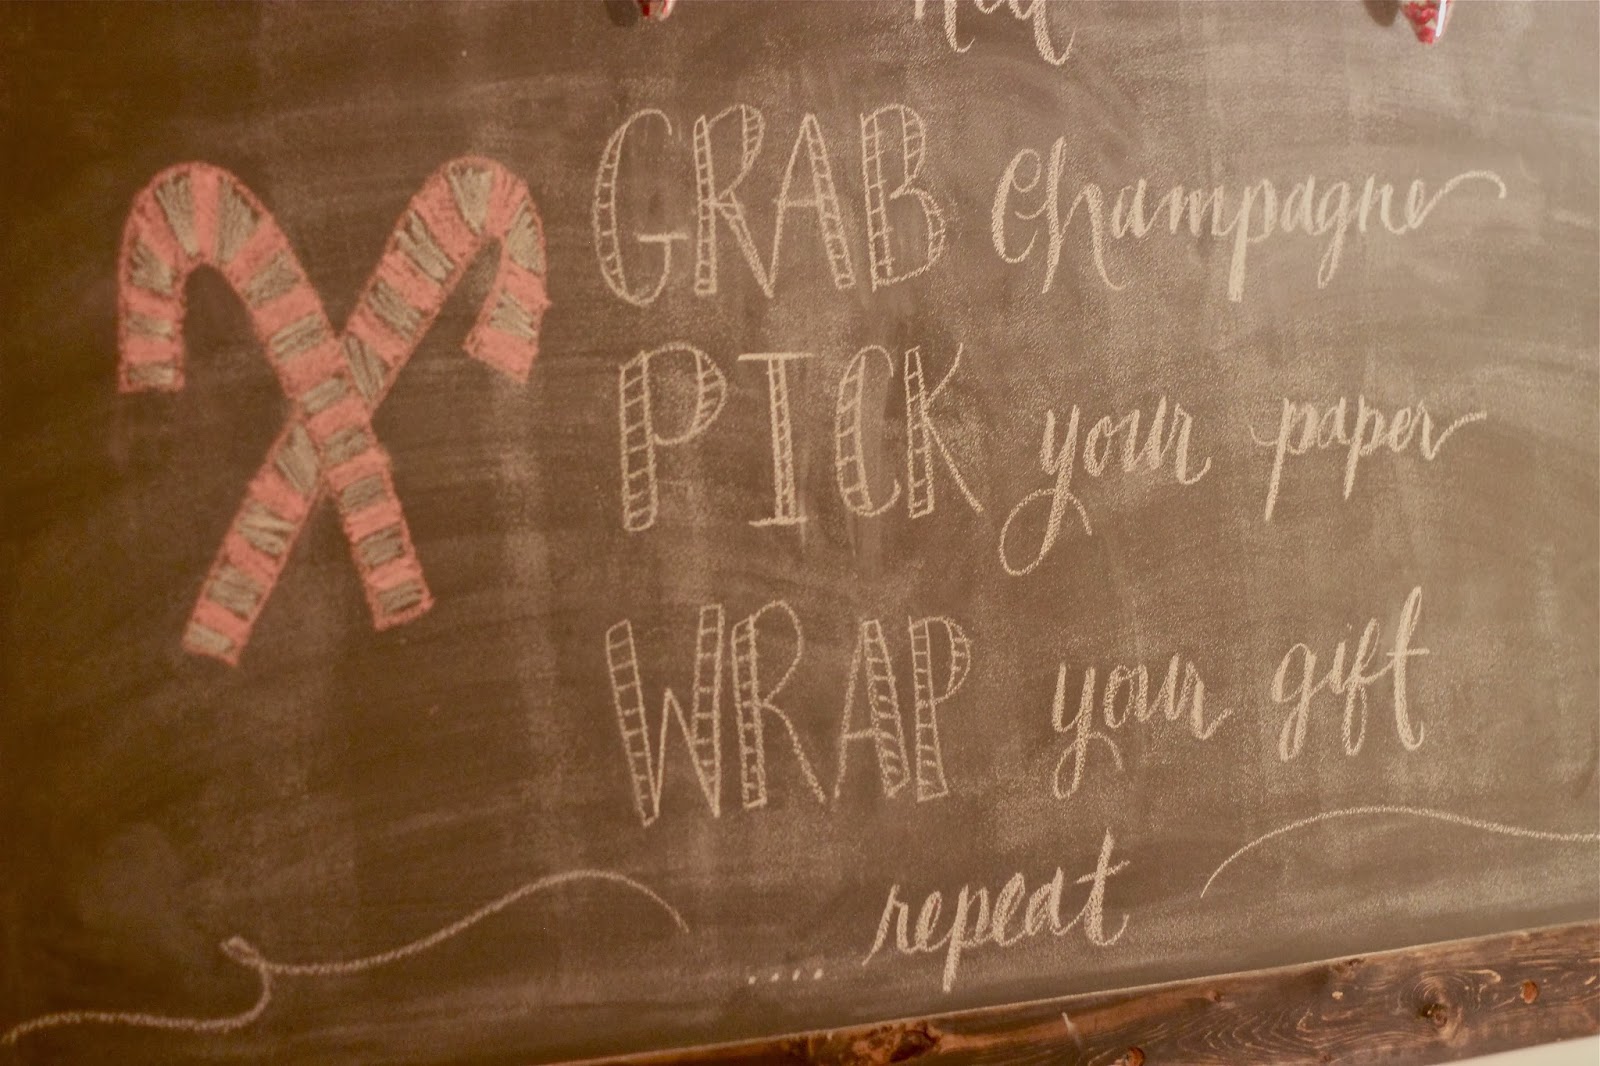 GRAB champagne
PICK your paper
WRAP your gift
.... repeat